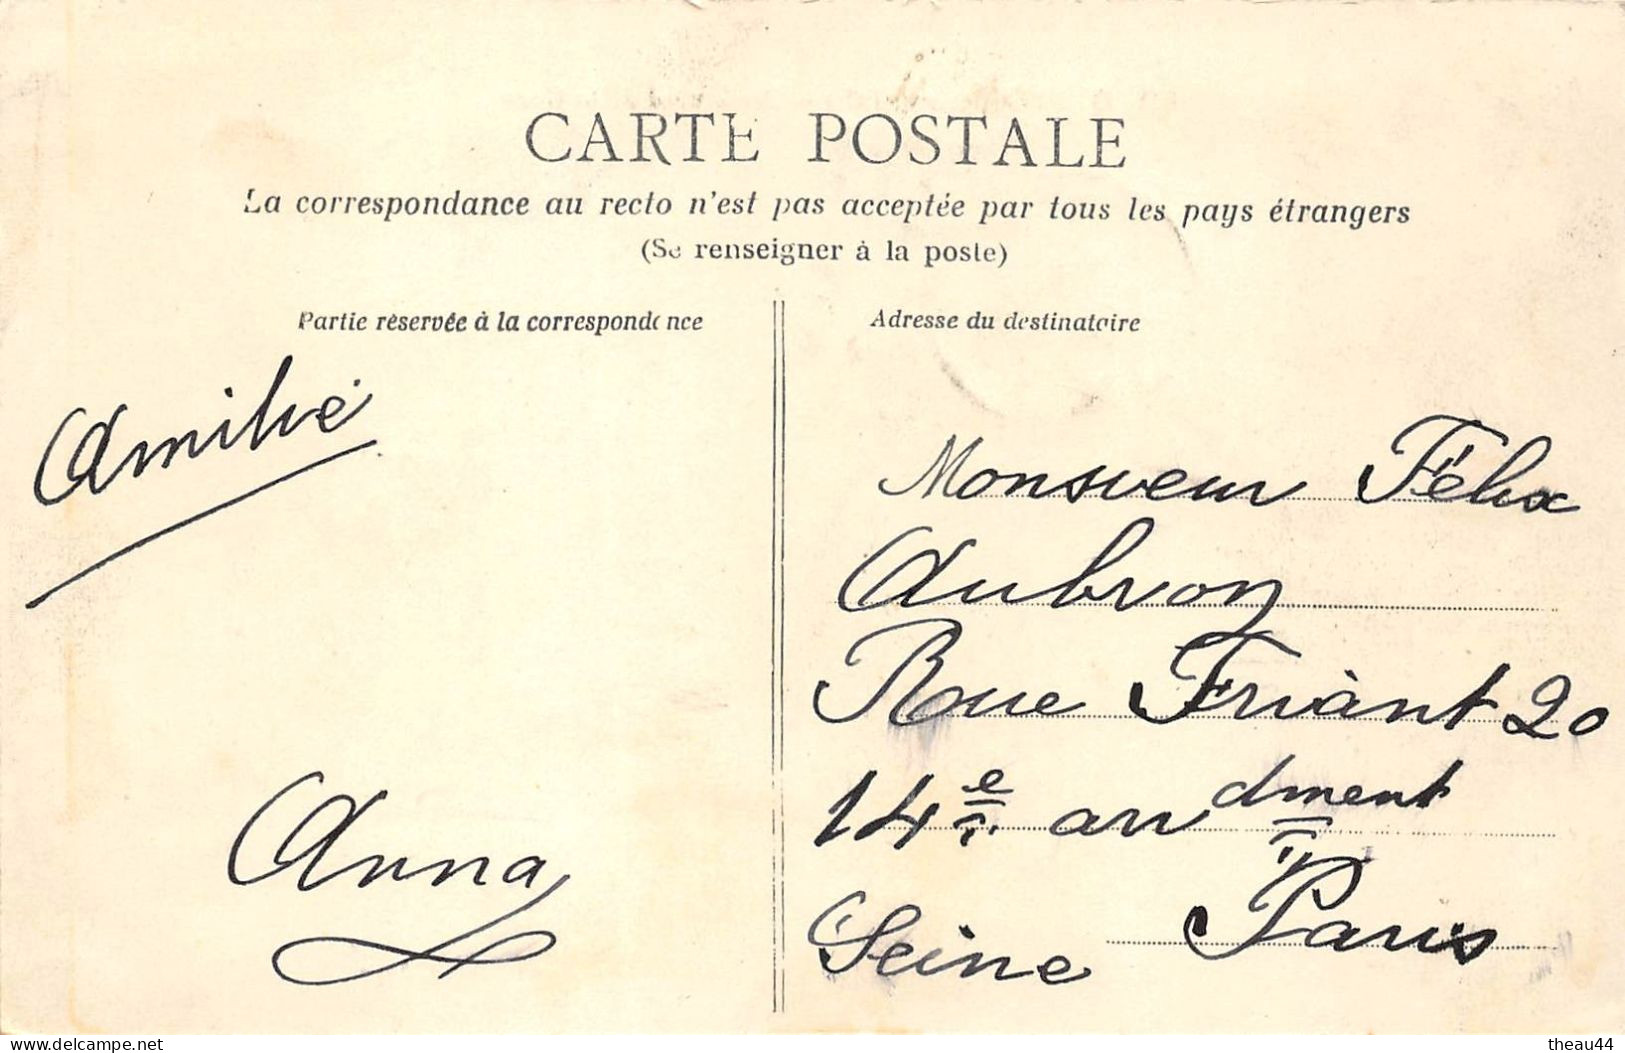 CARTE POSTALE
La correspondance au recto n'est pas acceptée par tous les pays étrangers
(Se renseigner à la poste)
Partie réservée à la correspondance
Adresse du destinataire
Amitié
Anna
Monsieur Félix
Aubron
Rue Friant 20
14e arrdment
Seine Paris
www.delcampe.net
theau44